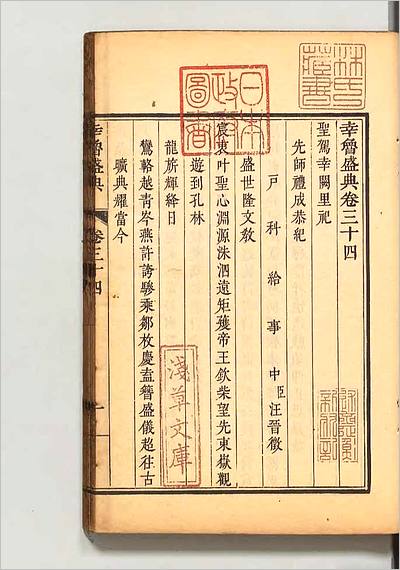 林氏藏書
日本政府圖書
幸魯盛典卷三十四
聖駕幸闕里祀
先師禮成恭紀
戶科給事中臣汪晉徵
盛世隆文敎
宸衷叶聖心淵源洙泗遠矩蒦帝王欽柴望先東嶽觀
遊到孔林
龍旂輝絳日
鸞輅越靑岑燕許誇驂乘鄒枚慶盍簪盛儀超往古
曠典耀當今
淺草文庫
幸魯盛典 卷三十四 一